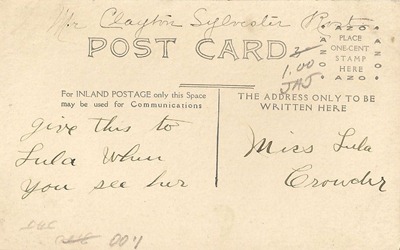 Mr Clayton Sylvester Post
POST CARD
AZO
PLACE
ONE-CENT
STAMP
HERE
AZO
1.00
For INLAND POSTAGE only this Space
may be used for Communications
THE ADDRESS ONLY TO BE
WRITTEN HERE
give this to
Lula When
you see her
Miss Lula
Crowder
1.00